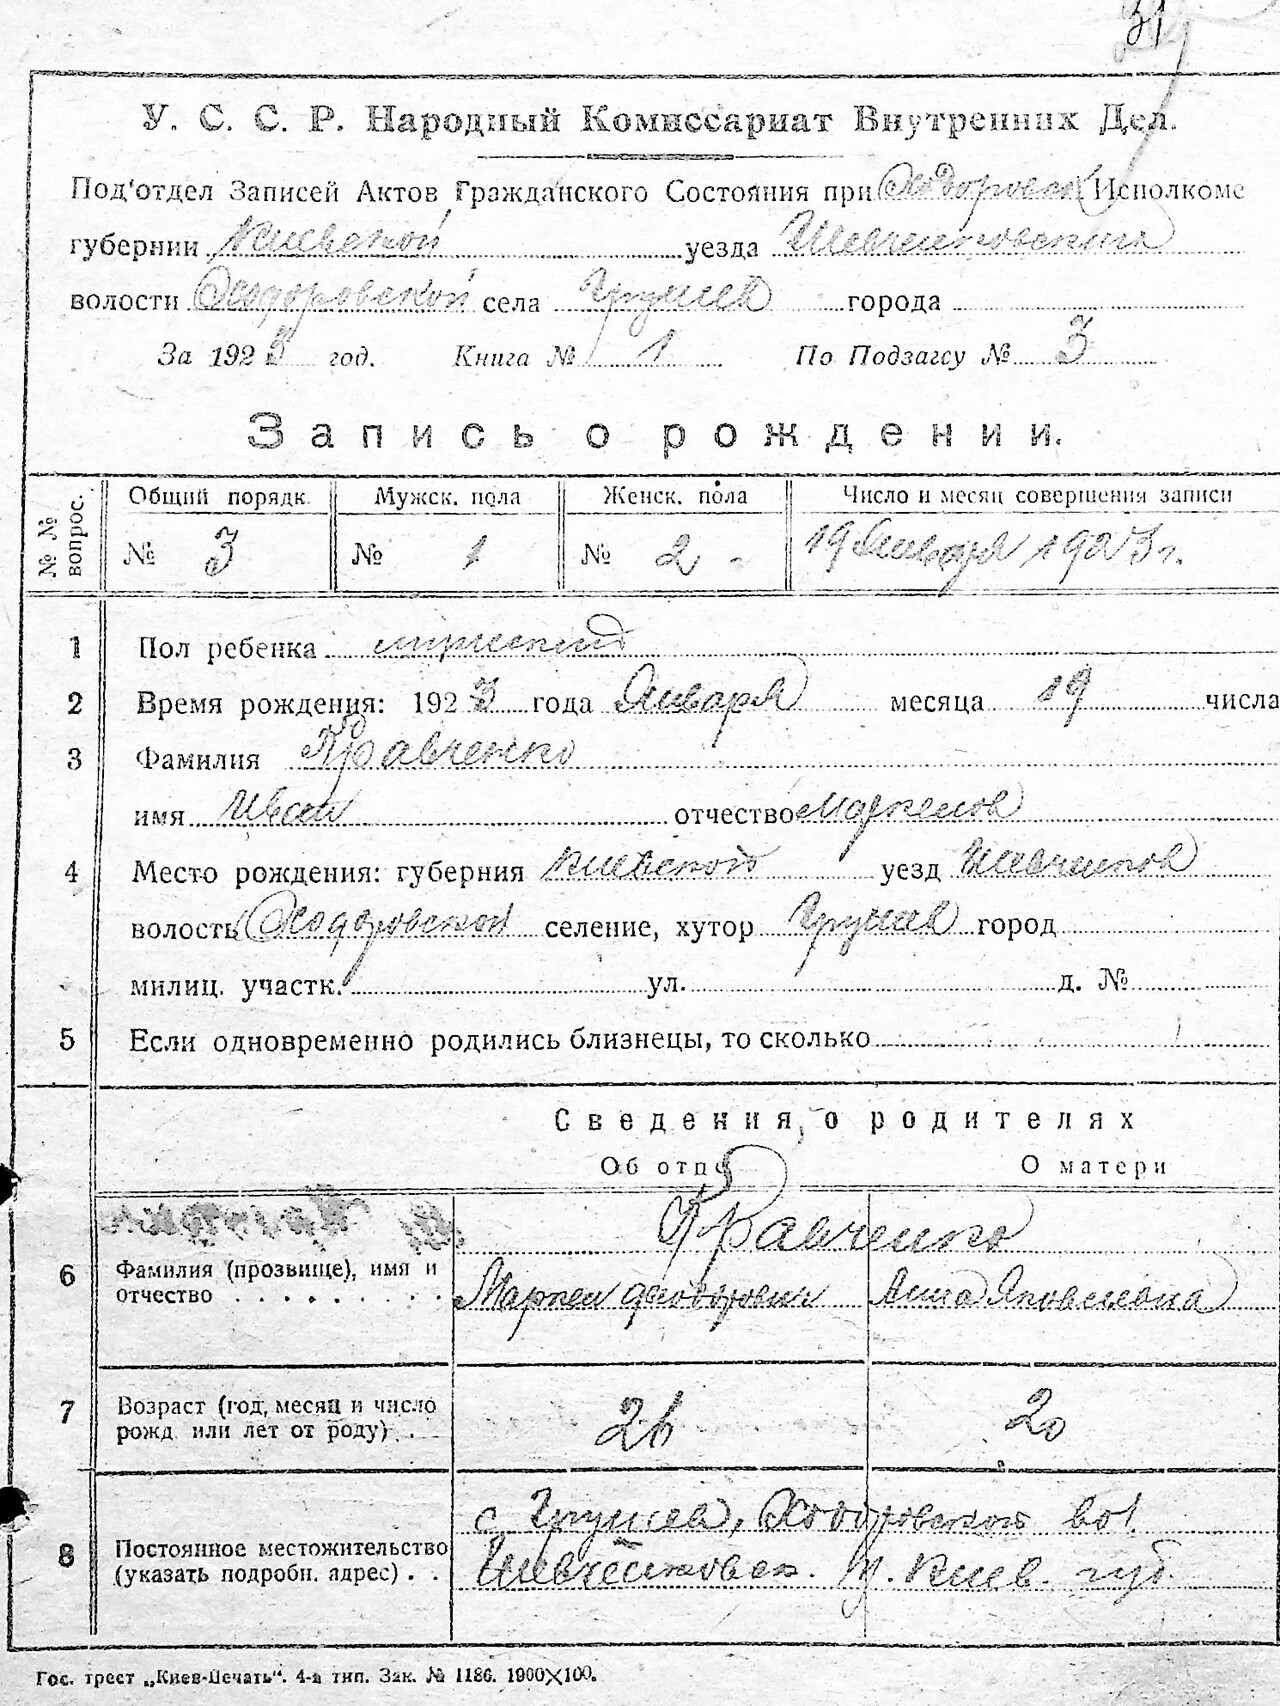 31
У. С. С. Р. Народный Комиссариат Внутренних Дел.
Под'отдел Записей Актов Гражданского Состояния при Ходоровск Исполкоме
губернии Киевской уезда Шевченковского
волости Ходоровской села Грушев города
За 1923 год. Книга № 1 По Подзагсу № 3
Запись о рождении.
№ № вопрос. Общий порядк. Мужск. пола Женск. пола Число и месяц совершения записи
№ 3 № 1 № 2 - 19 Января 1923 г.
1 Пол ребенка мужеский
2 Время рождения: 1923 года Января месяца 19 числа
3 Фамилия Кравченко
имя Иван отчество Маркелов
4 Место рождения: губерния Киевской уезд Шевченков
волость Ходоровской селение, хутор Грушев город
милиц. участк. ул. д. №
5 Если одновременно родились близнецы, то сколько
Сведения о родителях
Об отце О матери
Кравченко
6 Фамилия (прозвище), имя и
отчество . . . . . . . . . Маркел Феодорович Анна Яковлевна
7 Возраст (год, месяц и число
рожд. или лет от роду) . . 26 20
с. Грушев, Ходоровской вол.
8 Постоянное местожительство
(указать подробн. адрес) . . Шевченковск. у. Киев. губ.
Гос. трест „Киев-Печать“. 4-а тип. Зак. № 1186. 1900×100.